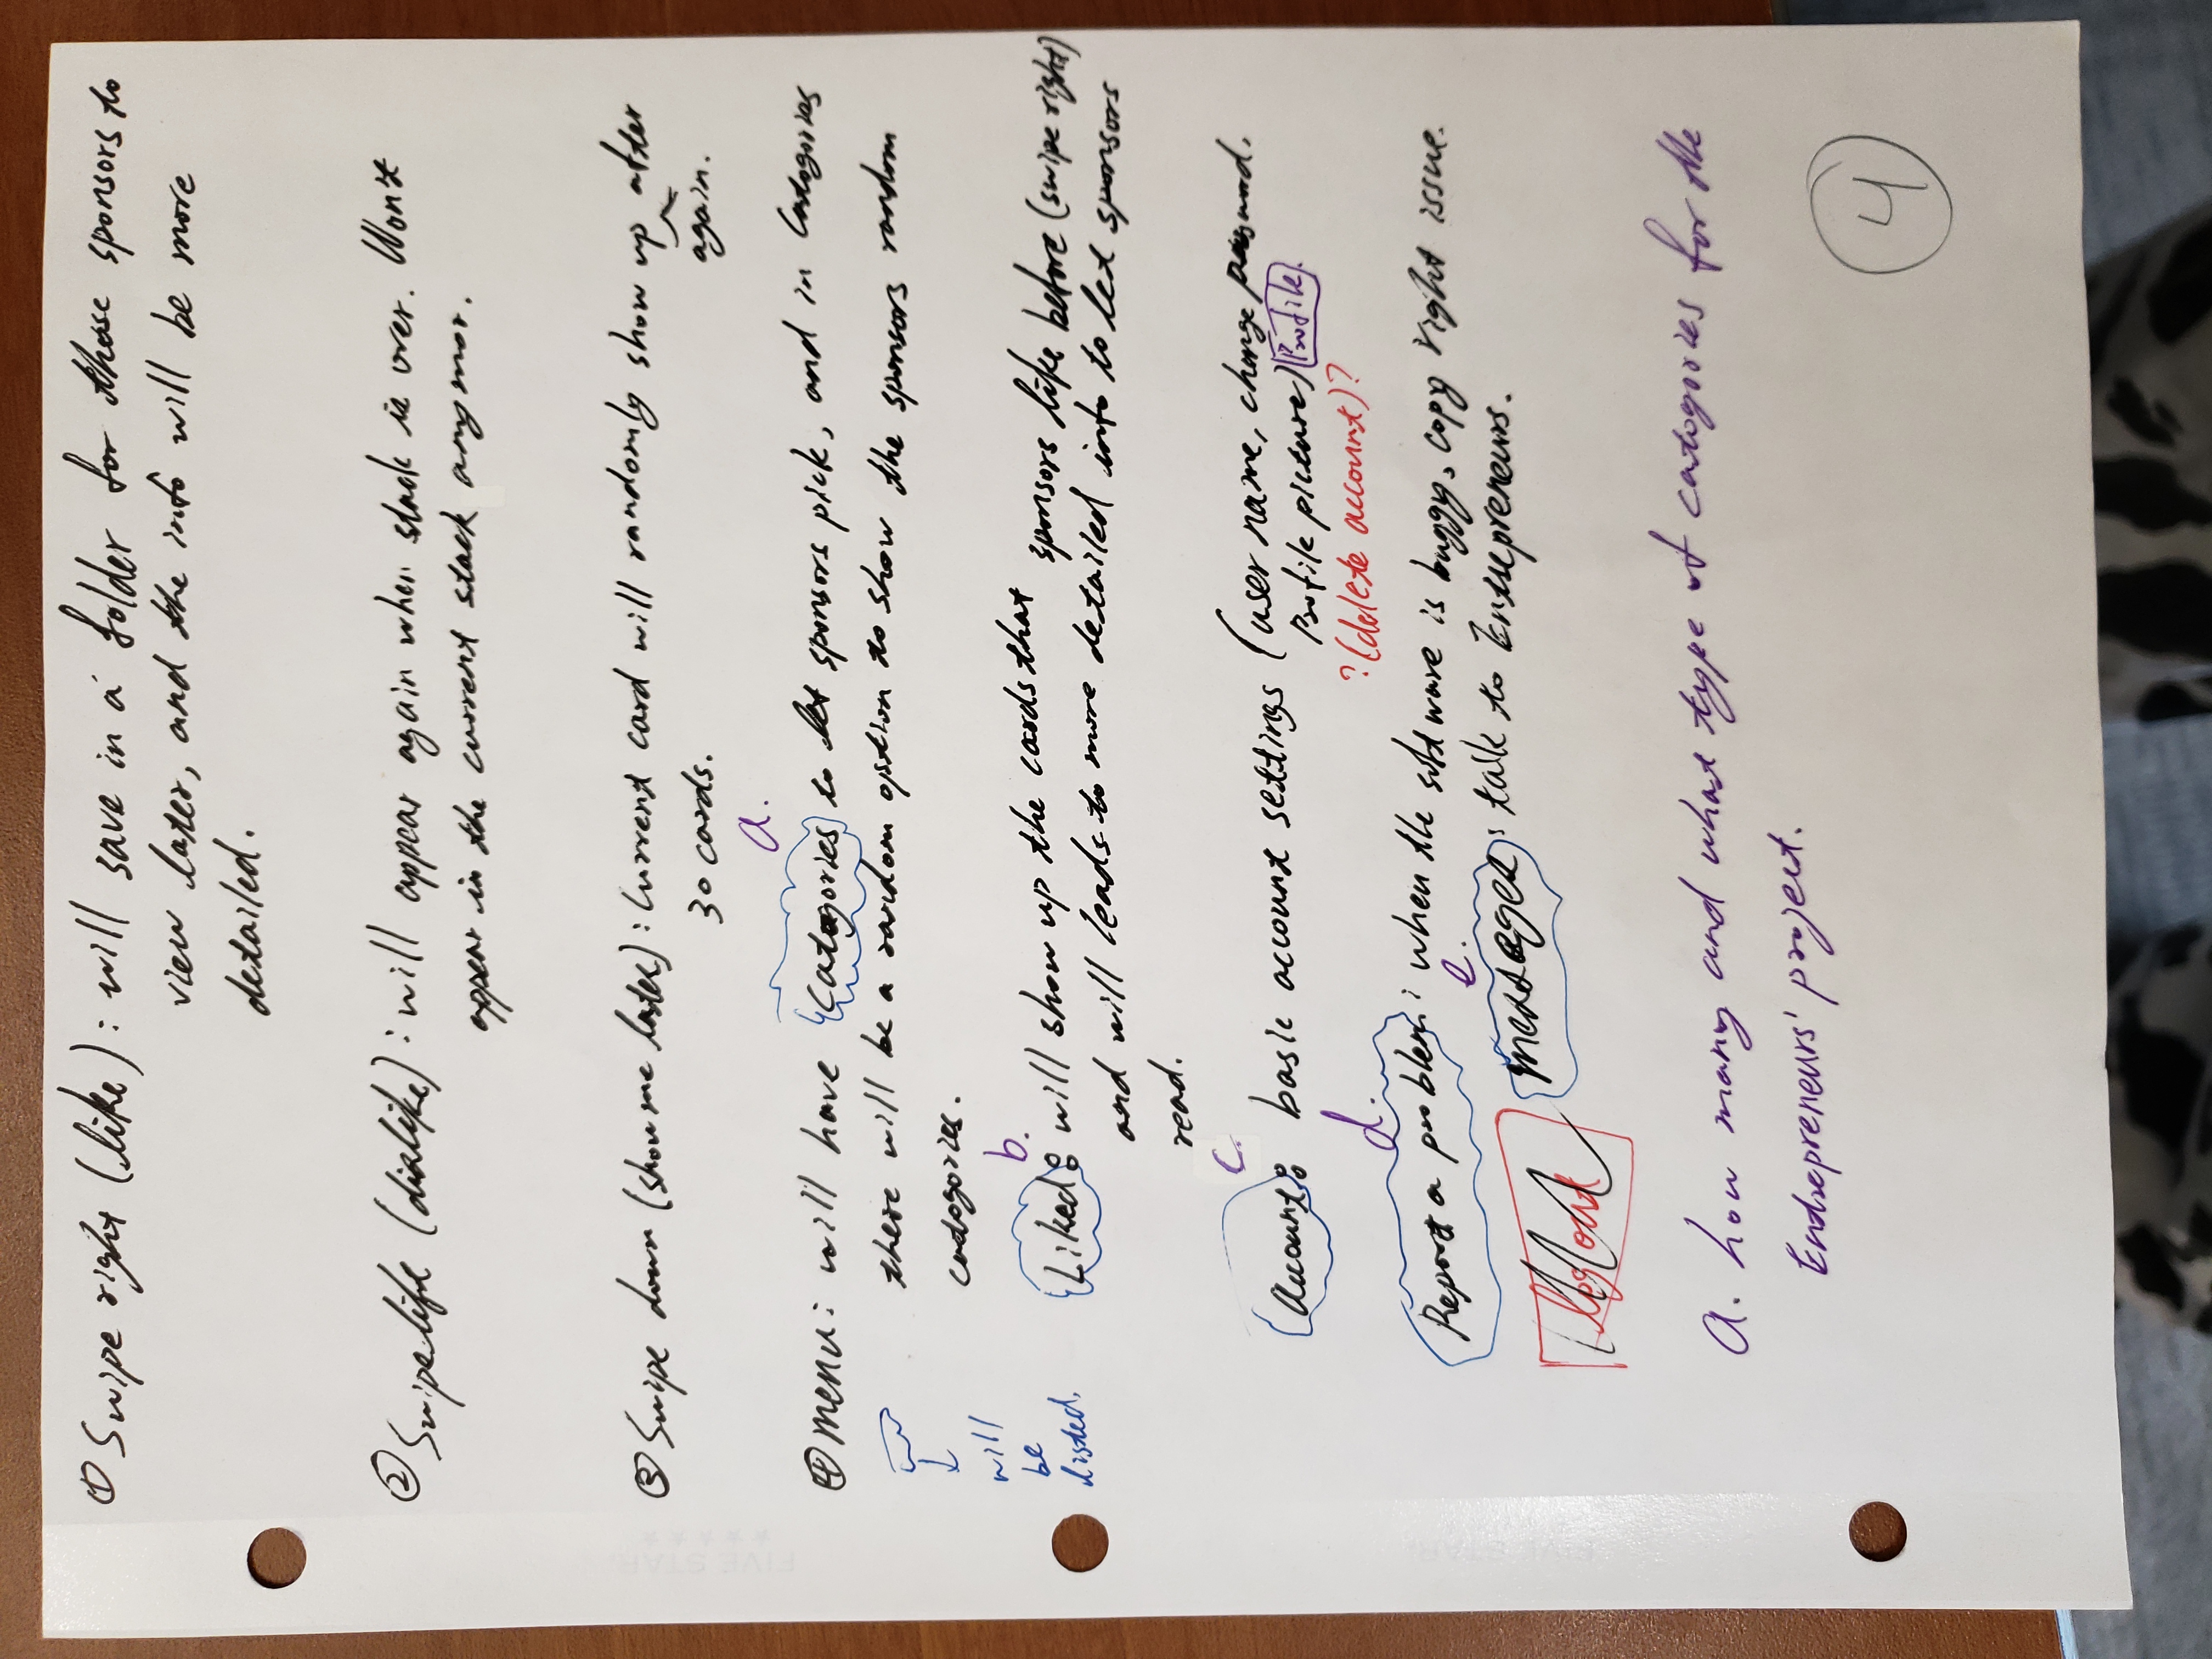 ① Swipe right (like): will save in a folder for those sponsors to
view later, and the info will be more
detailed.
② Swipe lift (dislike): will appear again when stack is over. Won't
appear in the current stack anymor.
③ Swipe down (show me later): Current card will randomly show up after
again.
30 cards.
a.
④ menu: will have Catagories to let sponsors pick, and in Catogories
there will be a random option to show the sponsors random
catogories.
will
be
listed.
b.
Liked: will show up the cards that sponsors like before (swipe right)
and will leads to more detailed info to let sponsors
read.
c.
account: basic account settings (user name, change password.
Profile picture) Profile.
?(delete account)?
d.
Report a problem: when the software is buggy, copy right issue.
e.
messages: talk to Entrepreneurs.
Log out
a. how many and what type of catogories for the
Entrepreneurs' project.
4
FIVE STAR
FIVE STAR